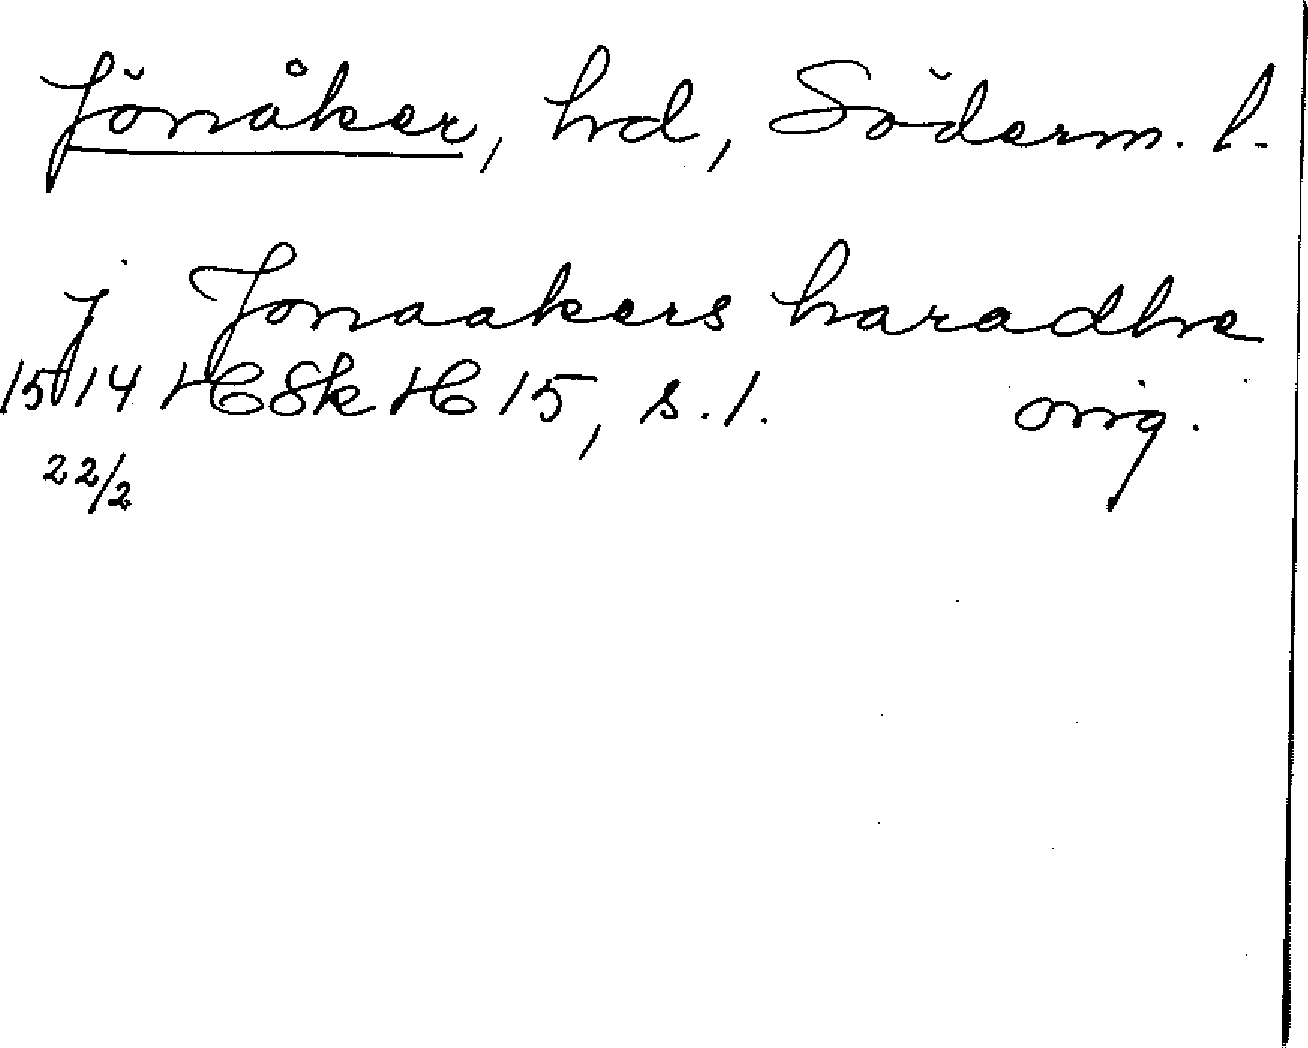 Jönåker, hd, Söderm. l.
j Jonaakers haradhe
1514 HSkH 15, s. 1. orig.
22/2